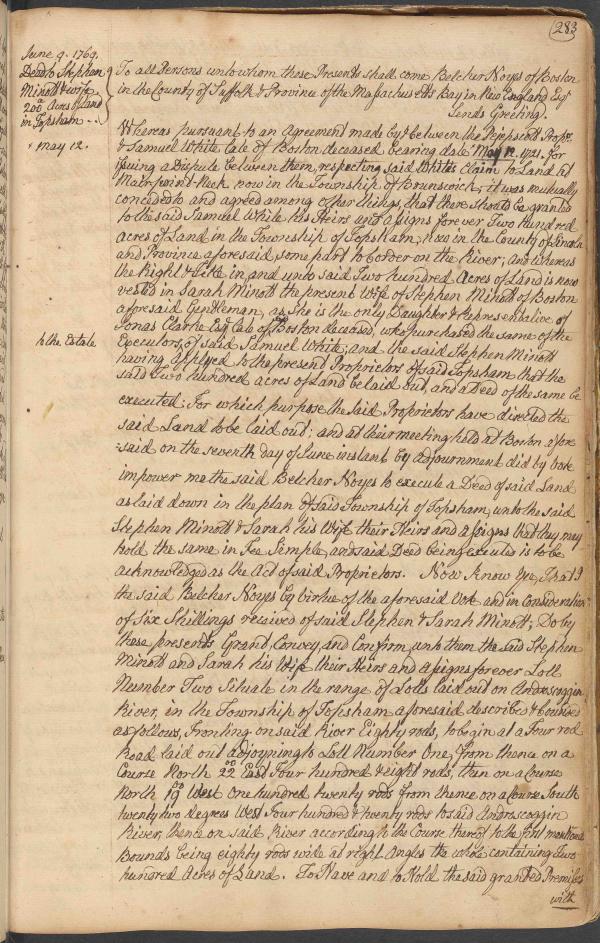 283
June 9. 1769.
Deed to Stephen
Minott & wife
200 Acres of Land
in Topsham ..
+ May 12.
to the Estate
To all Persons unto whom these Presents shall come Belcher Noyes of Boston
in the County of Suffolk & Province of the Massachusetts Bay in New England Esqr
Sends Greeting.
Whereas pursuant to an Agreement made by & between the Pejepscott Propre
& Samuel White late of Boston deceased bearing date May 12 1721. for
issuing a Dispute between them, respecting said White's Claim to Land at
Mairpoint Neck now in the Township of Brunswick, it was mutually
conceded to and agreed among other things, that there should be granted
to the said Samuel White his Heirs and assigns forever Two hundred
acres of Land in the Township of Topsham, now in the County of Lincoln
and Province aforesaid some part to border on the River; and whereas
the Right & Title in and unto said Two hundred Acres of Land is now
vested in Sarah Minott the present Wife of Stephen Minott of Boston
aforesaid Gentleman, as She is the only Daughter & Representative of
Jonas Clarke Esqr late of Boston deceased, who purchased the same of the
Executors, of said Samuel White; and the said Stephen Minott
having applyed to the present Proprietors of said Topsham that the
said Two hundred acres of Land be laid out and a Deed of the same be
executed: For which purpose the said Proprietors have directed the
said Land to be laid out; and at their meeting held at Boston afore
=said on the seventh day of June instant by adjournment did by Vote
impower me the said Belcher Noyes to execute a Deed of said Land
as laid down in the plan of said Township of Topsham, unto the said
Stephen Minott & Sarah his Wife their Heirs and assigns that they may
hold the same in Fee Simple, and said Deed being executed is to be
acknowledged as the Act of said Proprietors. Now Know Ye, That I
the said Belcher Noyes by Virtue of the aforesaid Vote and in Consideration
of Six Shillings received of said Stephen & Sarah Minott; Do by
these presents Grant, Convey, and Confirm unto them the said Stephen
Minott and Sarah his Wife their Heirs and assigns forever Lott
Number Two Situate in the range of Lotts laid out on Androscoggin
River, in the Township of Topsham aforesaid described & bounded
as follows, Fronting on said River Eighty rods, to begin at a Four rod
Road laid out adjoyning to Lott Number One, from thence on a
Course North 22 East Four hundred & eight rods, then on a Course
North 19 West One hundred twenty rods from thence on a Course South
twenty two degrees West Four hundred & twenty rods to said Androscoggin
River, thence on said River according to the Course thereof to the first mentioned
Bounds being eighty rods wide at right angles the whole containing Two
hundred Acres of Land. To Have and to Hold the said granted Premises
with